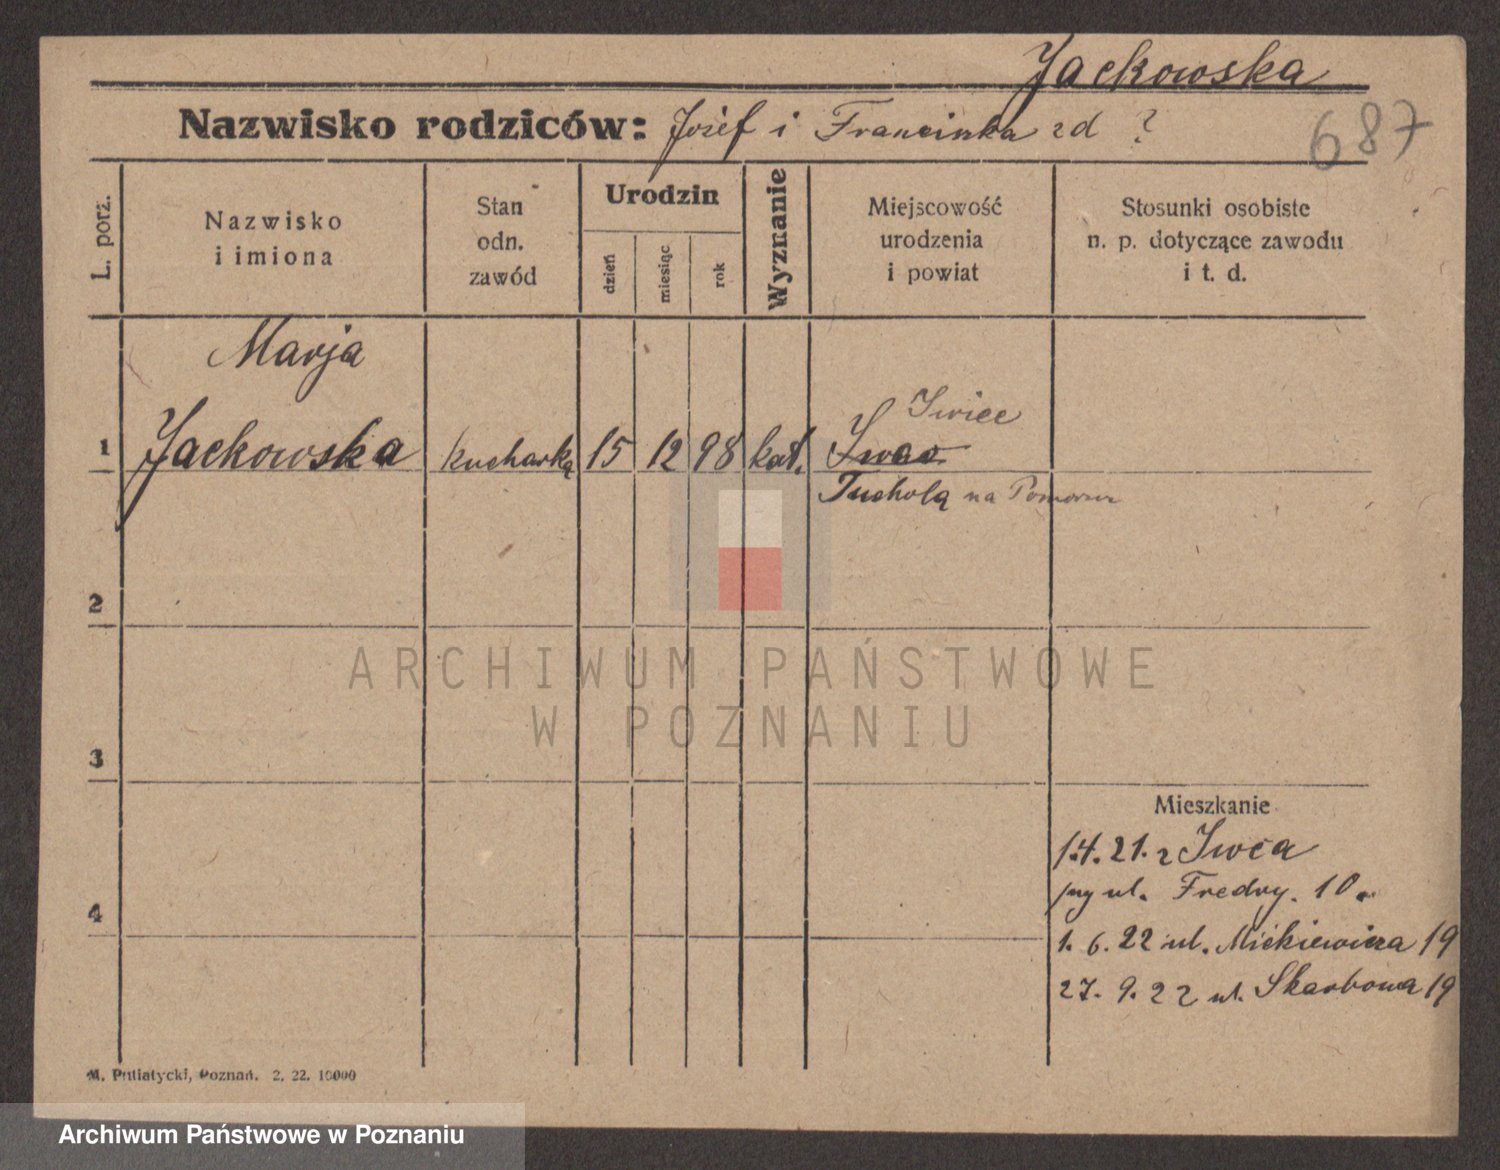 Jackowska
Nazwisko rodziców: Józef i Franciszka zd ?
687
L. porz.
Nazwisko
i imiona
Stan
odn.
zawód
Urodzin
dzień
miesiąc
rok
Wyznanie
Miejscowość
urodzenia
i powiat
Stosunki osobiste
n. p. dotyczące zawodu
i t. d.
Marja
1 Jackowska kucharką 15 12 98 kat.
Iwiec
Tucholą na Pomorzu
2
3
4
ARCHIWUM PAŃSTWOWE
W POZNANIU
Mieszkanie
1.4.21. z Iwca
przy ul. Fredry. 10.
1. 6. 22 ul. Mickiewicza 19
27. 9. 22 ul. Skarbowa 19
M. Putiatycki, Poznań. 2. 22. 10000
Archiwum Państwowe w Poznaniu